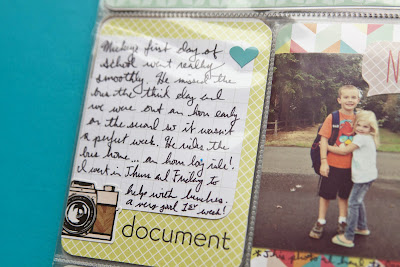 Mickey's first day of
school went really
smoothly. He missed the
bus the third day and
we were out an hour early
on the second so it wasn't
a perfect week. He rides the
bus home... an hour long ride!
I went in Thurs and Friday to
help with lunches.
a very good 1st week!
document
N
this photo